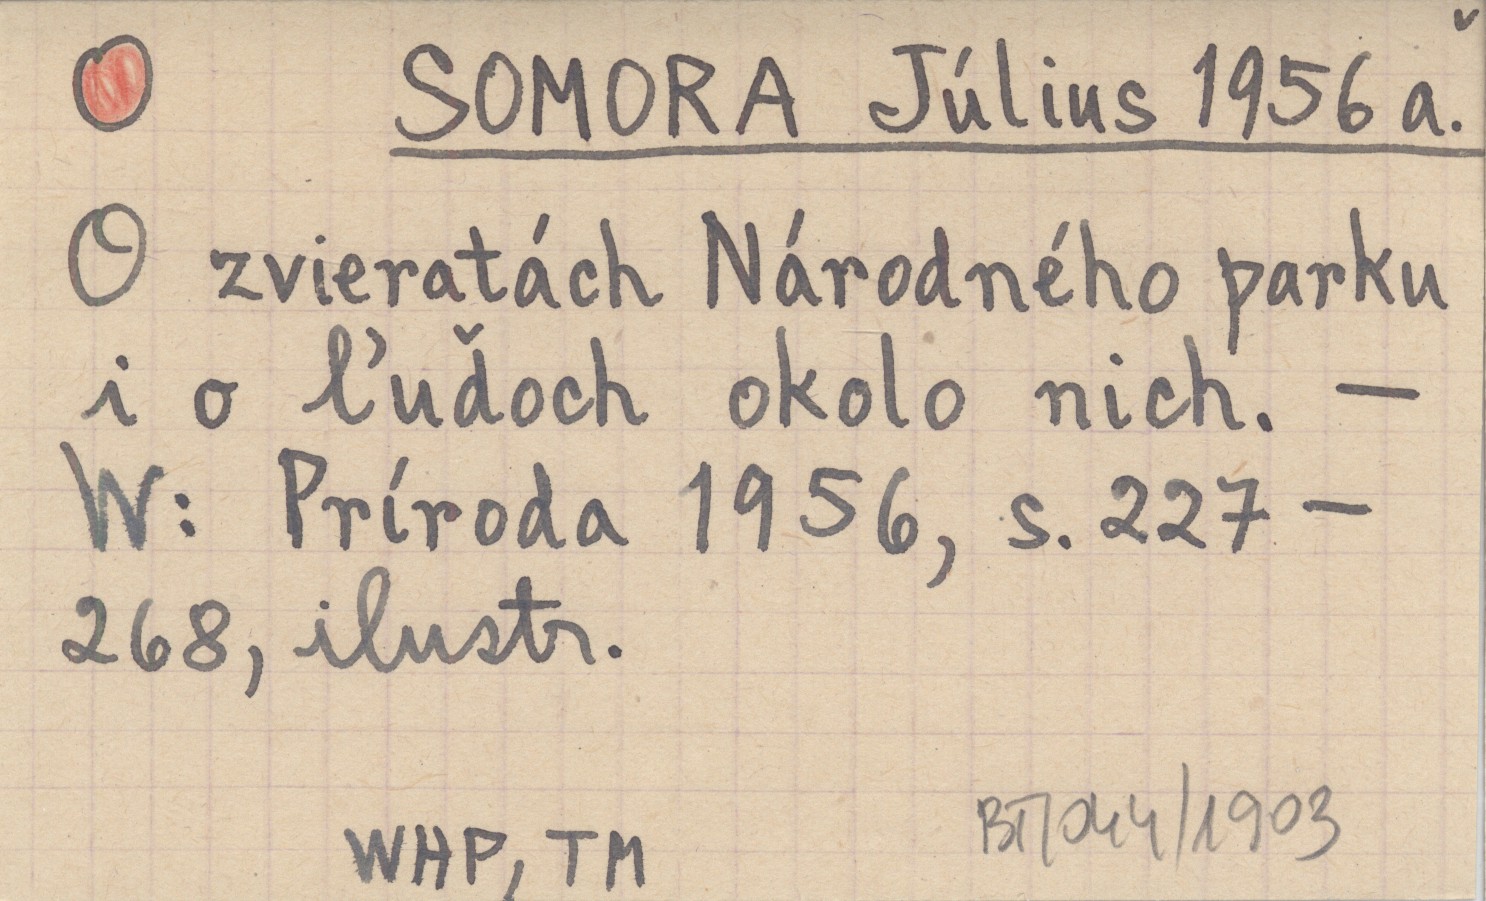 SOMORA Július 1956 a.
O zvieratách Národného parku
i o ľuďoch okolo nich. —
W: Príroda 1956, s. 227 –
268, ilustr.
WHP, TM
BT/044/1903